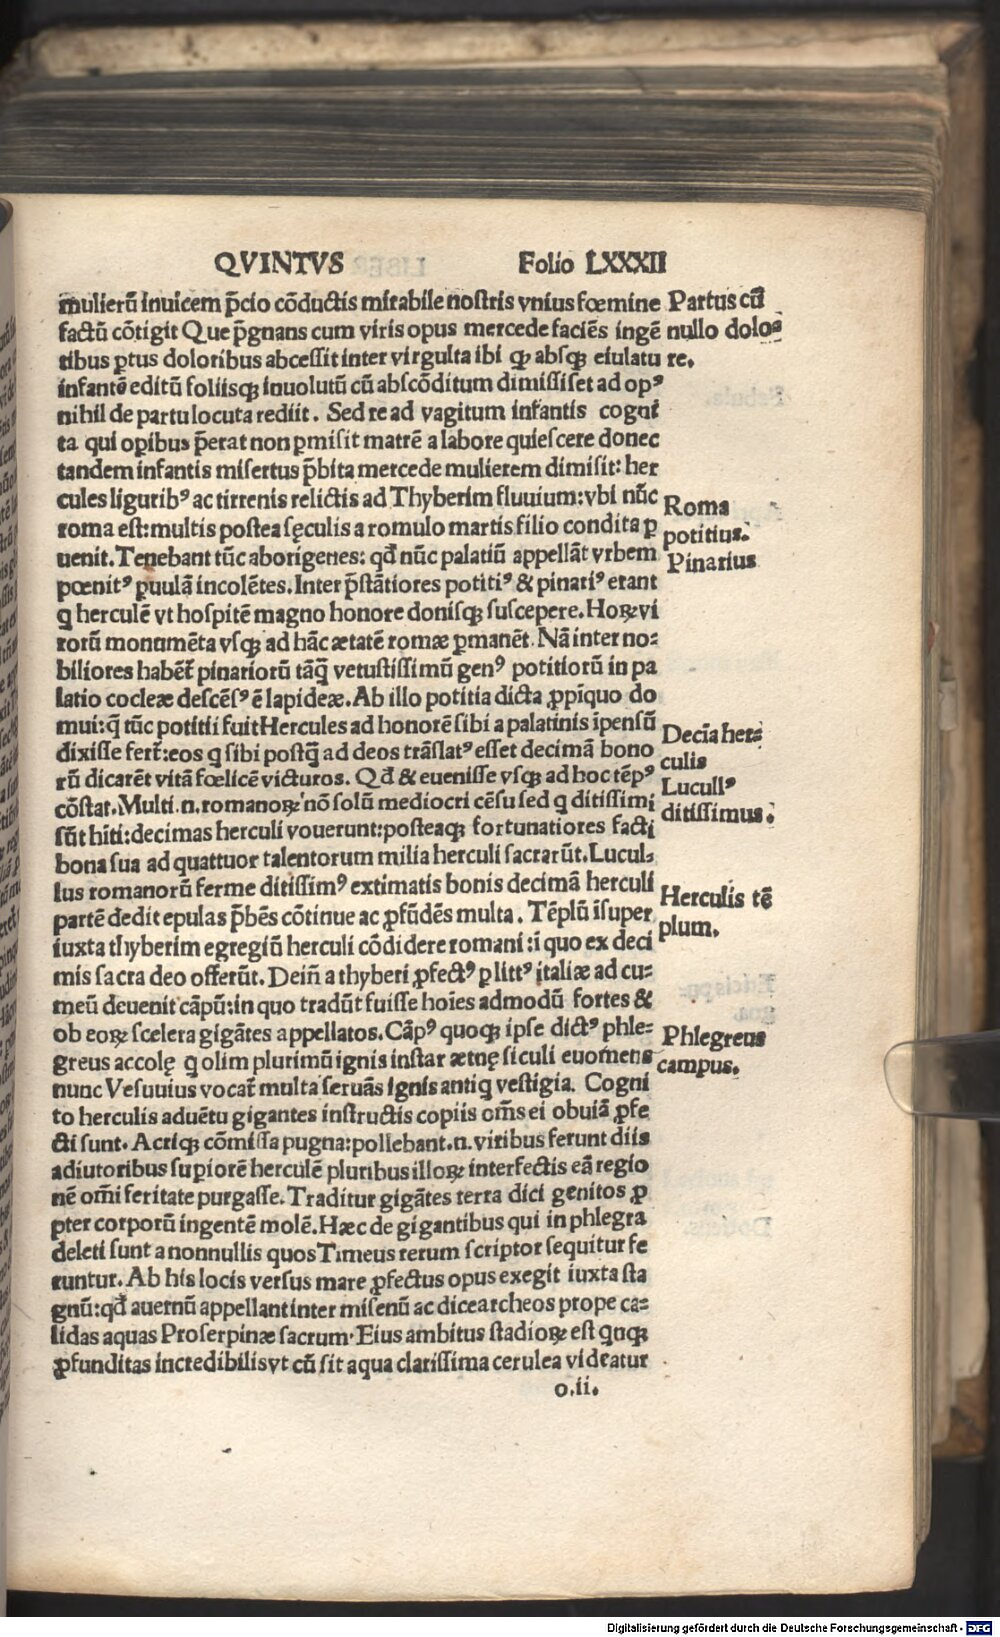 QVINTVS Folio LXXXII
mulierū inuicem p̄cio cōductis mirabile noſtris vnius fœmine
factū cōtigit Que p̄gnans cum viris opus mercede faciēs ingē
tibus ꝑtus doloribus abceſſit inter virgulta ibi ꝙ abſqꝫ eiulatu
infantē editū foliisqꝫ inuolutū cū abſcōditum dimiſiſet ad opꝰ
nihil de partu locuta rediit. Sed re ad vagitum infantis cogni
ta qui oꝑibus p̄erat non ꝑmiſit matrē a labore quieſcere donec
tandem infantis miſertus p̄bita mercede mulierem dimiſit: her
cules liguribꝰ ac tirrenis relictis ad Thyberim fluuium: vbi nūc
roma eſt: multis poſtea ſęculis a romulo martis filio condita ꝑ
uenit. Tenebant tūc aborigenes: qd̄ nūc palatiū appellāt vrbem
pœnitꝰ ꝑuulā incolētes. Inter p̄ſtātiores potitiꝰ & pinariꝰ erant
q̄ herculē vt hoſpitē magno honore doniſqꝫ ſuſcepere. Hoꝝ vi
rorū monumēta vſqꝫ ad hāc ætatē romæ ꝑmanēt. Nā inter no:
biliores habēt̄ pinariorū tāq̄ vetuſtiſſimū genꝰ potitiorū in pa
latio cocleæ deſcēſꝰ ē lapideæ. Ab illo potitia dicta ꝓpīquo do
mui: q̄ tūc potitii fuit Hercules ad honorē ſibi a palatinis īpenſū
dixiſſe fert̄: eos q̄ ſibi poſtq̄ ad deos trāſlatꝰ eſſet decimā bono
rū dicarēt vitā fœlicē victuros. Qd̄ & eueniſſe vſqꝫ ad hoc tēpꝰ
cōſtat. Multi .n. romanoꝝ nō ſolū mediocri cēſu ſed q̄ ditiſſimi
ſūt hiti: decimas herculi vouerunt: poſteaqꝫ fortunatiores facti
bona ſua ad quattuor talentorum milia herculi ſacrarūt. Lucul:
lus romanorū ferme ditiſſimꝰ extimatis bonis decimā herculi
partē dedit epulas p̄bēs cōtinue ac ꝓfūdēs multa. Tēplū īſuper
iuxta thyberim egregiū herculi cōdidere romani: ī quo ex deci
mis ſacra deo offerūt. Deīn a thyberi ꝓfectꝰ ꝑ littꝰ italiæ ad cu:
meū deuenit cāpū: in quo tradūt fuiſſe hoīes admodū fortes &
ob eoꝝ ſcelera gigātes appellatos. Cāpꝰ quoqꝫ ipſe dictꝰ phle:
greus accolę q̄ olim plurimū ignis inſtar ætnę ſiculi euomens
nunc Veſuuius vocat̄ multa ſeruās ignis antiq̄ veſtigia. Cogni
to herculis aduētu gigantes inſtructis copiis om̄s ei obuiā ꝓfe
cti ſunt. Acriqꝫ cōmiſſa pugna: pollebant .n. viribus ferunt diis
adiutoribus ſuꝑiorē herculē pluribus illoꝝ interfectis eā regio
nē om̄i feritate purgaſſe. Traditur gigātes terra dici genitos ꝓ
pter corporū ingentē molē. Hæc de gigantibus qui in phlegra
deleti ſunt a nonnullis quos Timeus rerum ſcriptor ſequitur fe
runtur. Ab his locis verſus mare ꝓfectus opus exegit iuxta ſta
gnū: qd̄ auernū appellant inter miſenū ac dicearcheos prope ca:
lidas aquas Proſerpinæ ſacrum. Eius ambitus ſtadioꝝ eſt q̄nqꝫ
ꝓfunditas incredibilis vt cū ſit aqua clariſſima cerulea videatur
o.ii.
Partus cū
nullo dolo:
re.
Roma
potitius.
Pinarius
Decīa her:
culis
Lucullꝰ
ditiſſimus.
Herculis tē
plum.
Phlegreus
campus.
Digitalisierung gefördert durch die Deutsche Forschungsgemeinschaft - DFG